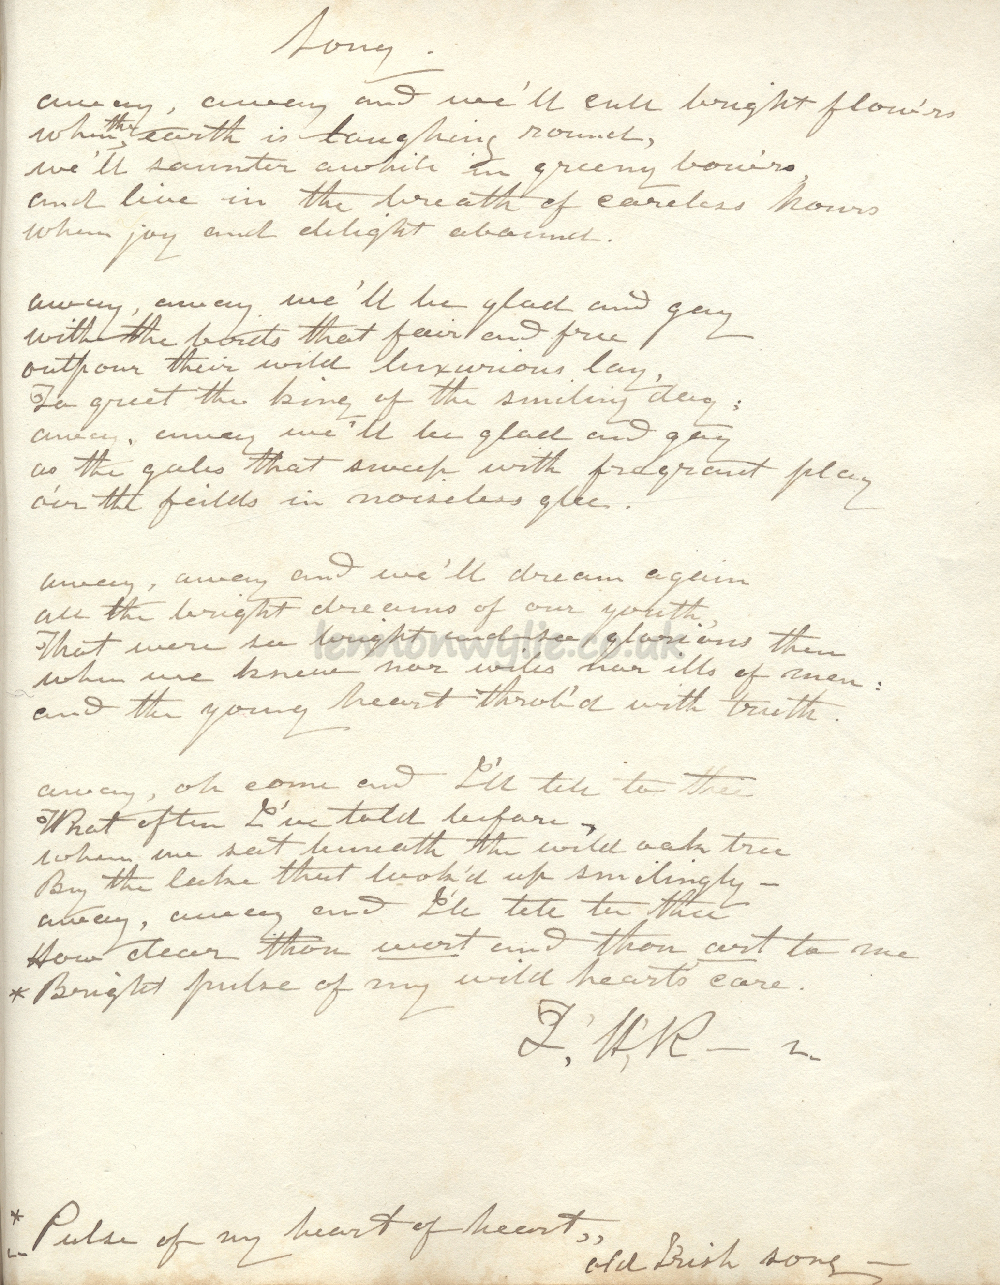 Song.
away, away and we'll cull bright flow'rs
when the earth is laughing round,
we'll saunter awhile in greeny bow'rs,
and live in the breath of careless hours
when joy and delight abound.
away, away we'll be glad and gay
with the birds that fair and free
outpour their wild luxurious lay,
To greet the king of the smiling day;
away, away we'll be glad and gay
as the gales that sweep with fragrant play
o'er the feilds in noiseless glee.
away, away and we'll dream again
all the bright dreams of our youth,
That were so bright and so glorious then
lennonwylie.co.uk
when we knew nor wiles nor ills of men:
and the young heart throb'd with truth.
away, oh come and I'll tell to thee
What often I've told before,
when we sat beneath the wild oak tree
By the lake that look'd up smilingly —
away, away and I'll tell to thee
How dear thou wert and thou art to me
* Bright pulse of my wild hearts core.
T, H, R —
* Pulse of my heart of heart,,
old Irish song —